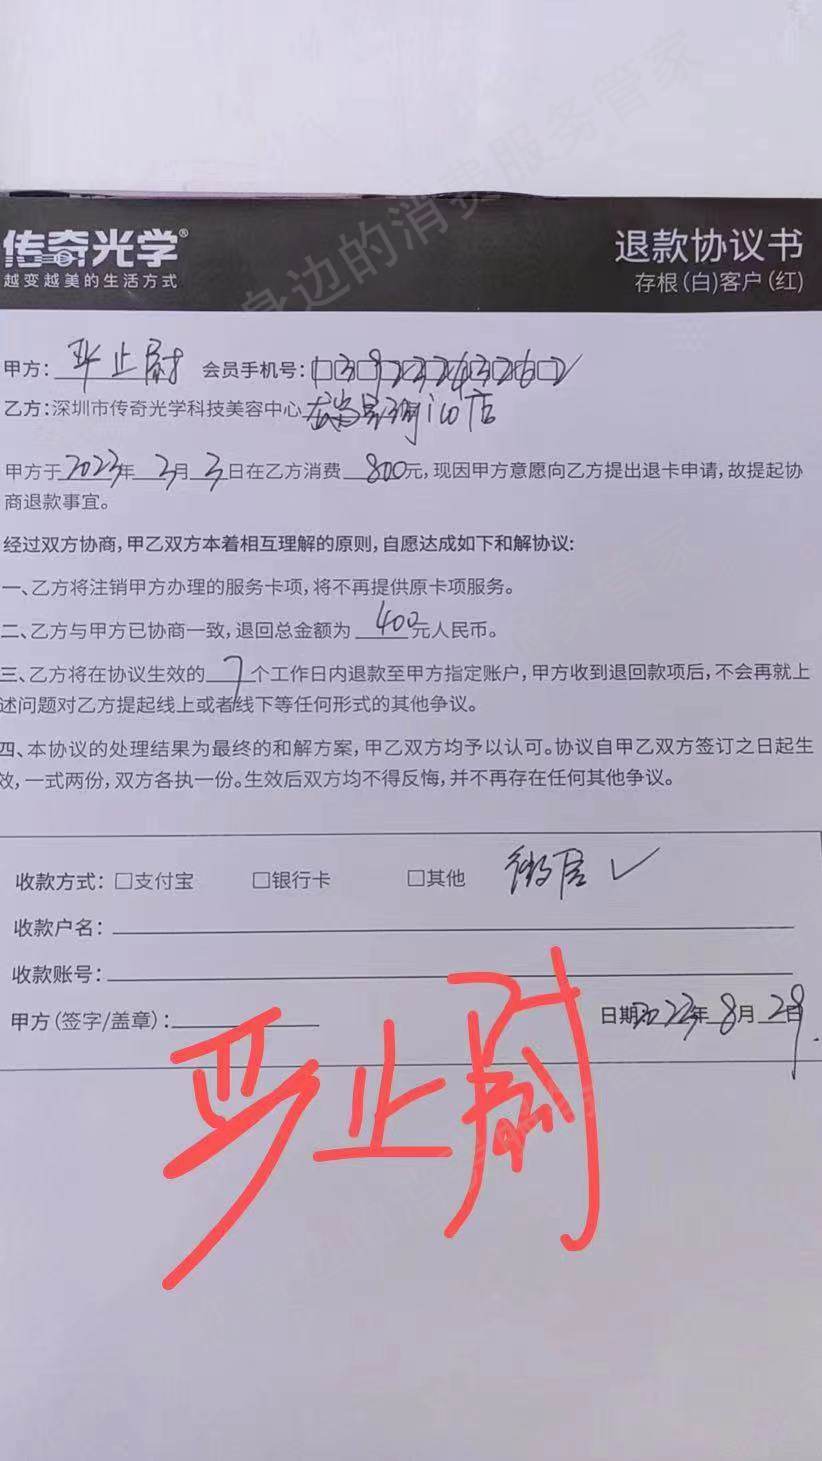 身边的消费服务管家
传奇光学®
越变越美的生活方式
退款协议书
存根(白)客户(红)
甲方: 严止尉 会员手机号:
乙方:深圳市传奇光学科技美容中心 店
甲方于2023年2月3日在乙方消费800元,现因甲方意愿向乙方提出退卡申请,故提起协
商退款事宜。
经过双方协商,甲乙双方本着相互理解的原则,自愿达成如下和解协议:
一、乙方将注销甲方办理的服务卡项,将不再提供原卡项服务。
二、乙方与甲方已协商一致,退回总金额为400元人民币。
三、乙方将在协议生效的7个工作日内退款至甲方指定账户,甲方收到退回款项后,不会再就上
述问题对乙方提起线上或者线下等任何形式的其他争议。
四、本协议的处理结果为最终的和解方案,甲乙双方均予以认可。协议自甲乙双方签订之日起生
效,一式两份,双方各执一份。生效后双方均不得反悔,并不再存在任何其他争议。
收款方式:□支付宝 □银行卡 □其他 微信✓
收款户名:
收款账号:
甲方(签字/盖章): 日期:2023年8月29日
严止尉